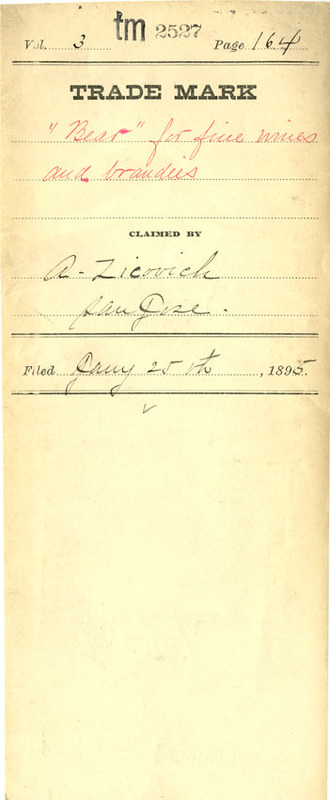 tm 2527
Vol. 3 Page 164
TRADE MARK
"Bear" for fine wines
and brandies
CLAIMED BY
A. Zicovich
San Jose.
Filed Jany 25th, 1895.